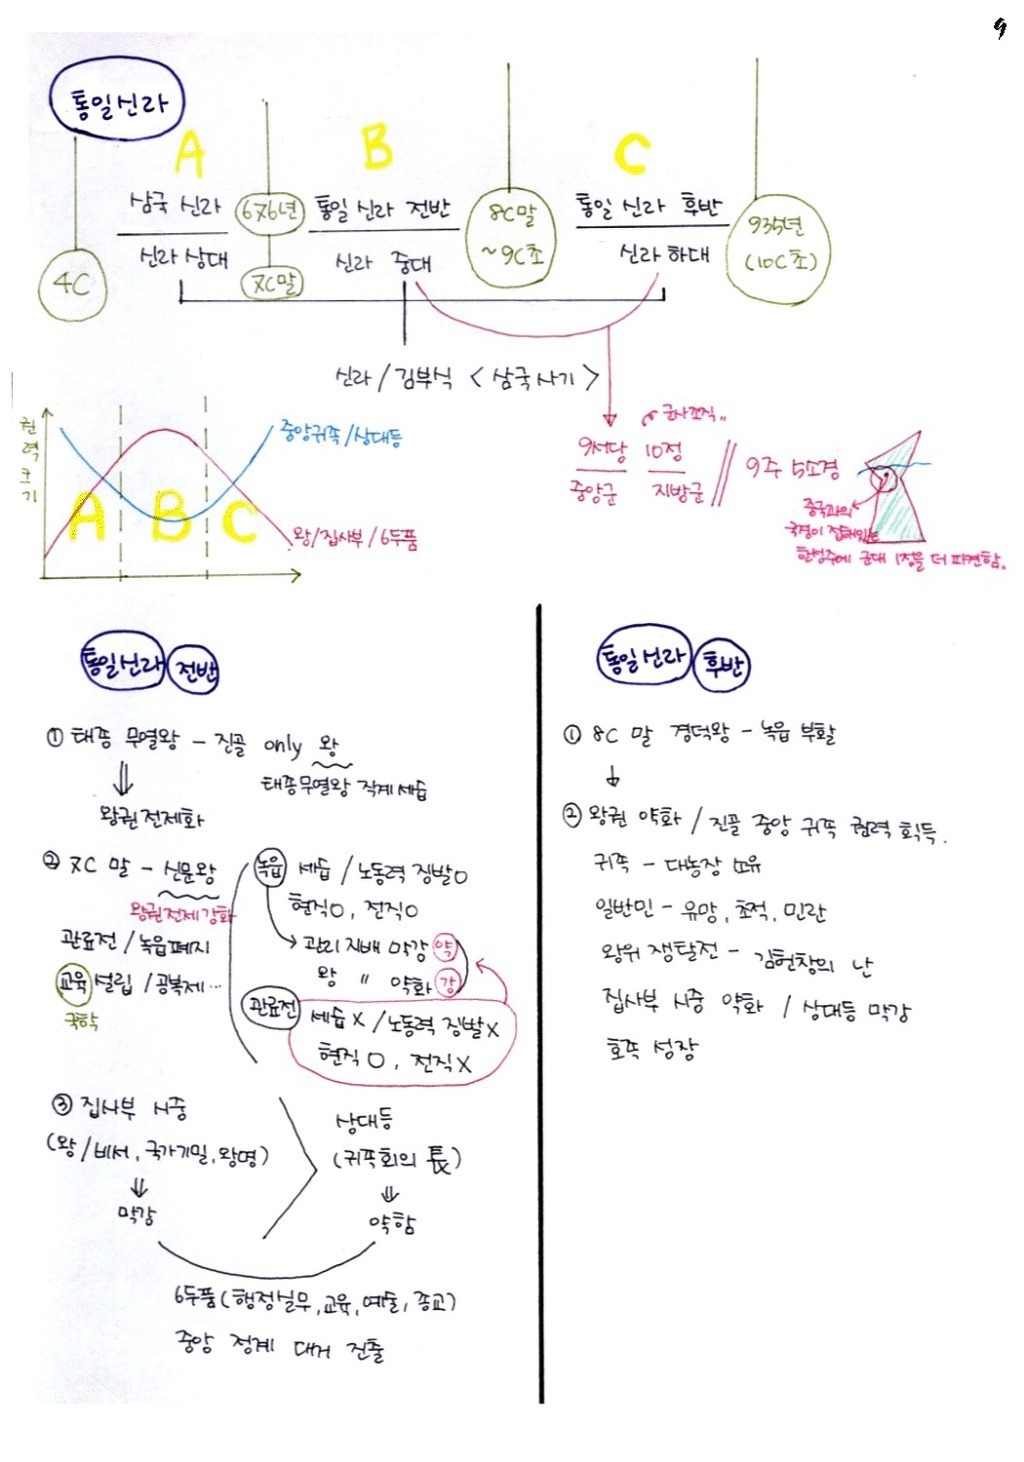 9
통일신라
A
B
C
삼국 신라
676년
통일 신라 전반
8C말
~9C초
통일 신라 후반
935년
(10C초)
4C
신라 상대
7C말
신라 중대
신라 하대
신라/김부식 <삼국사기>
권력크기
중앙귀족/상대등
A B C
왕/집사부/6두품
군사조직"
9서당 10정 // 9주 5소경
중앙군 지방군
중국과의
국경이 접해있는
한성주에 군대 1정을 더 파견함.
통일신라 전반
① 태종 무열왕 - 진골 only 왕
태종무열왕 직계세습
왕권전제화
② 7C 말 - 신문왕
왕권전제강화
관료전/녹읍폐지
교육 설립/공복제…
국학
녹읍 세습 / 노동력 징발O
현직O, 전직O
→ 관리 지배 막강 약
왕 〃 약화 강
관료전 세습X/노동력 징발X
현직O, 전직X
③ 집사부 시중
(왕/비서, 국가기밀, 왕명)
⇓
막강
상대등
(귀족회의 長)
⇓
약함
6두품(행정실무, 교육, 예술, 종교)
중앙 정계 대거 진출
통일신라 후반
① 8C 말 경덕왕 - 녹읍 부활
↓
② 왕권 약화 / 진골 중앙 귀족 권력 획득.
귀족 - 대농장 소유
일반민 - 유망, 초적, 민란
왕위 쟁탈전 - 김헌창의 난
집사부 시중 약화 / 상대등 막강
호족 성장